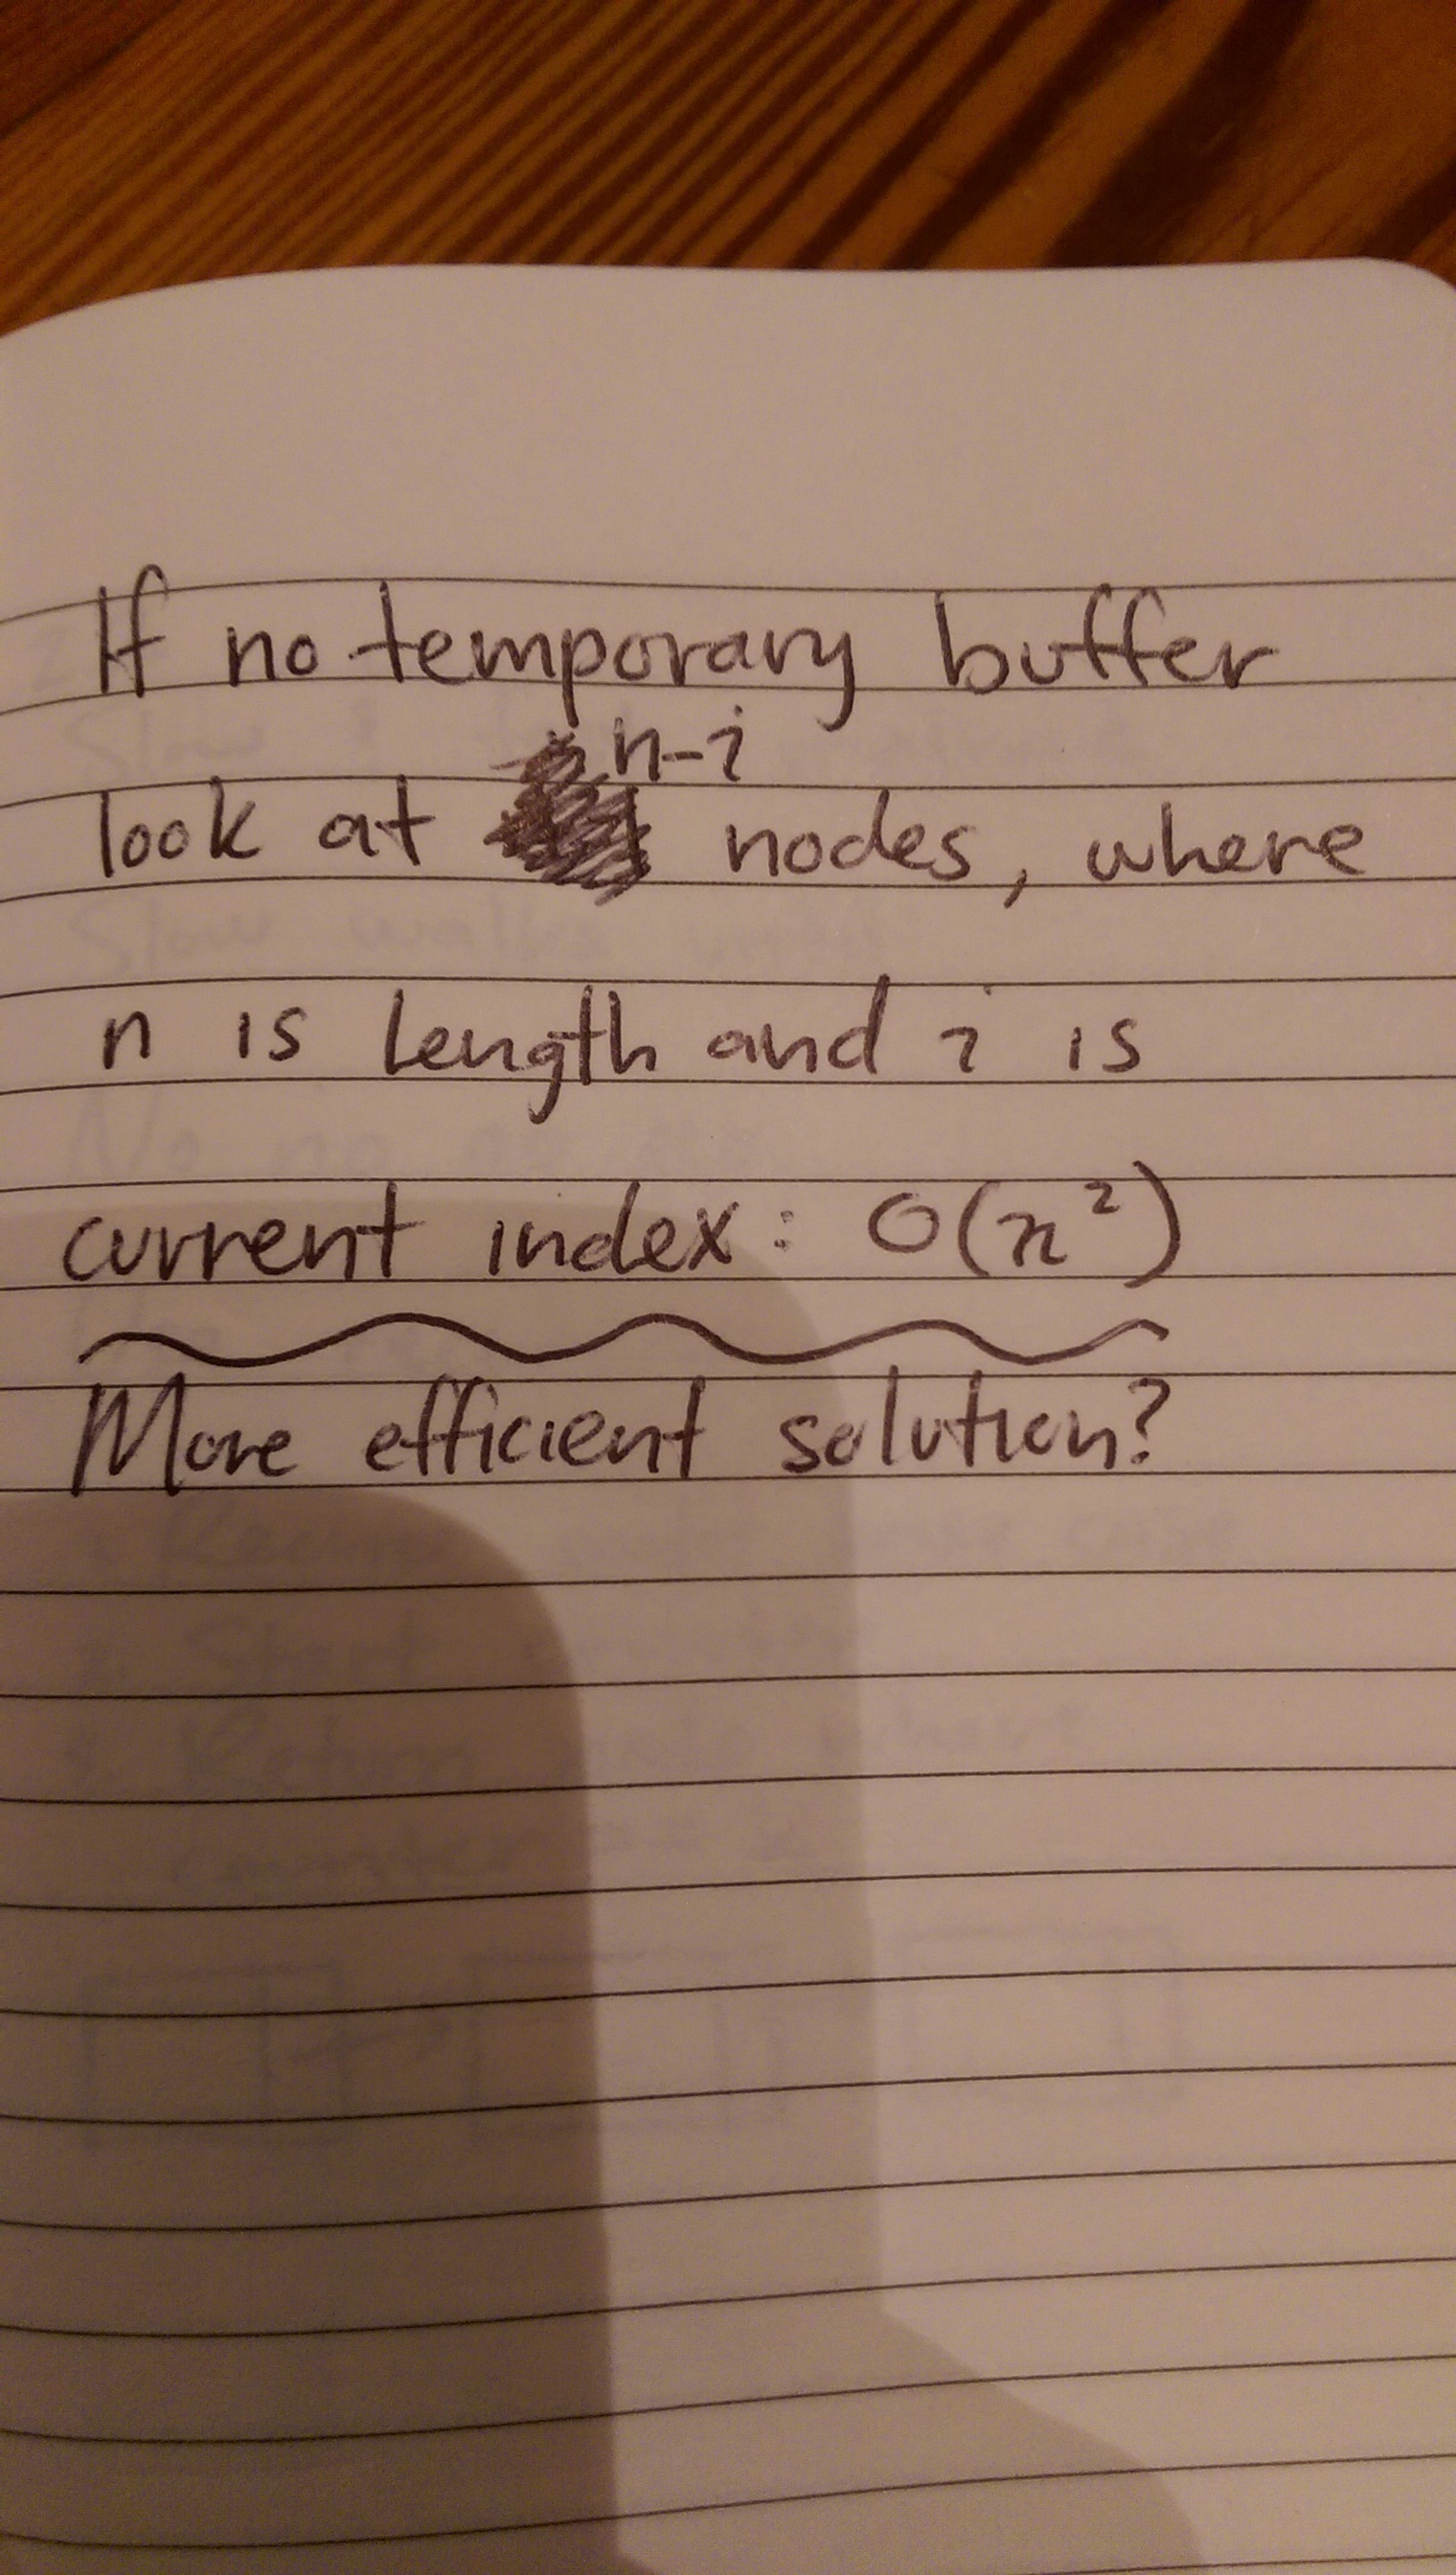 If no temporary buffer
n-i
look at nodes, where
n is length and i is
current index: O(n²)
More efficient solution?